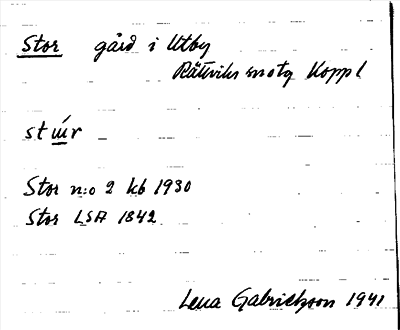 Stor gård i Utby
Rättviks sn otg Koppl
stúr
Stor n:o 2 kb 1930
Stor LSA 1842
Lena Gabrielsson 1941